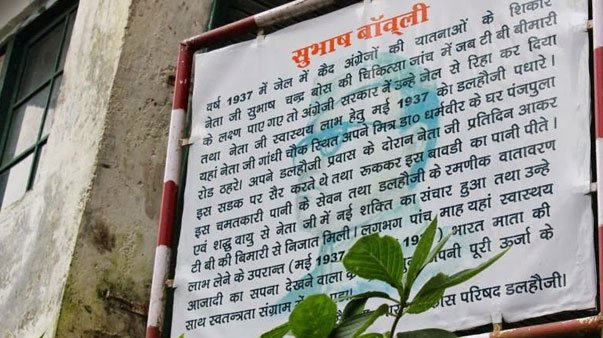 सुभाष बॉव्ली
वर्ष 1937 में जेल में कैद अंग्रेनों की यातनाओं के शिकार
नेता जी सुभाष चन्द्र बोस की चिकित्सा जांच में जब टी बी बीमारी
के लक्षण पाए गए तो अंग्रेजी सरकार नें उन्हे जेल से रिहा कर दिया
तथा नेता जी स्वास्थय लाभ हेतु मई 1937 को डलहौजी पधारे।
यहां नेता जी गांधी चौक स्थित अपने मित्र डा० धर्मवीर के घर पंजपुला
रोड ठहरे। अपने डलहौजी प्रवास के दौरान नेता जी प्रतिदिन आकर
इस सडक पर सैर करते थे तथा रूककर इस बावडी का पानी पीते।
इस चमतकारी पानी के सेवन तथा डलहौजी के रमणीक वातावरण
एवं शुद्ध वायु से नेता जी में नई शक्ति का संचार हुआ तथा उन्हे
टी बी की बिमारी से निजात मिली। लगभग पांच माह यहां स्वास्थय
लाभ लेने के उपरान्त (मई 1937 1937) भारत माता की
आजादी का सपना देखने वाला पनी पूरी ऊर्जा के
साथ स्वतन्त्रता संग्राम में
परिषद डलहौजी।